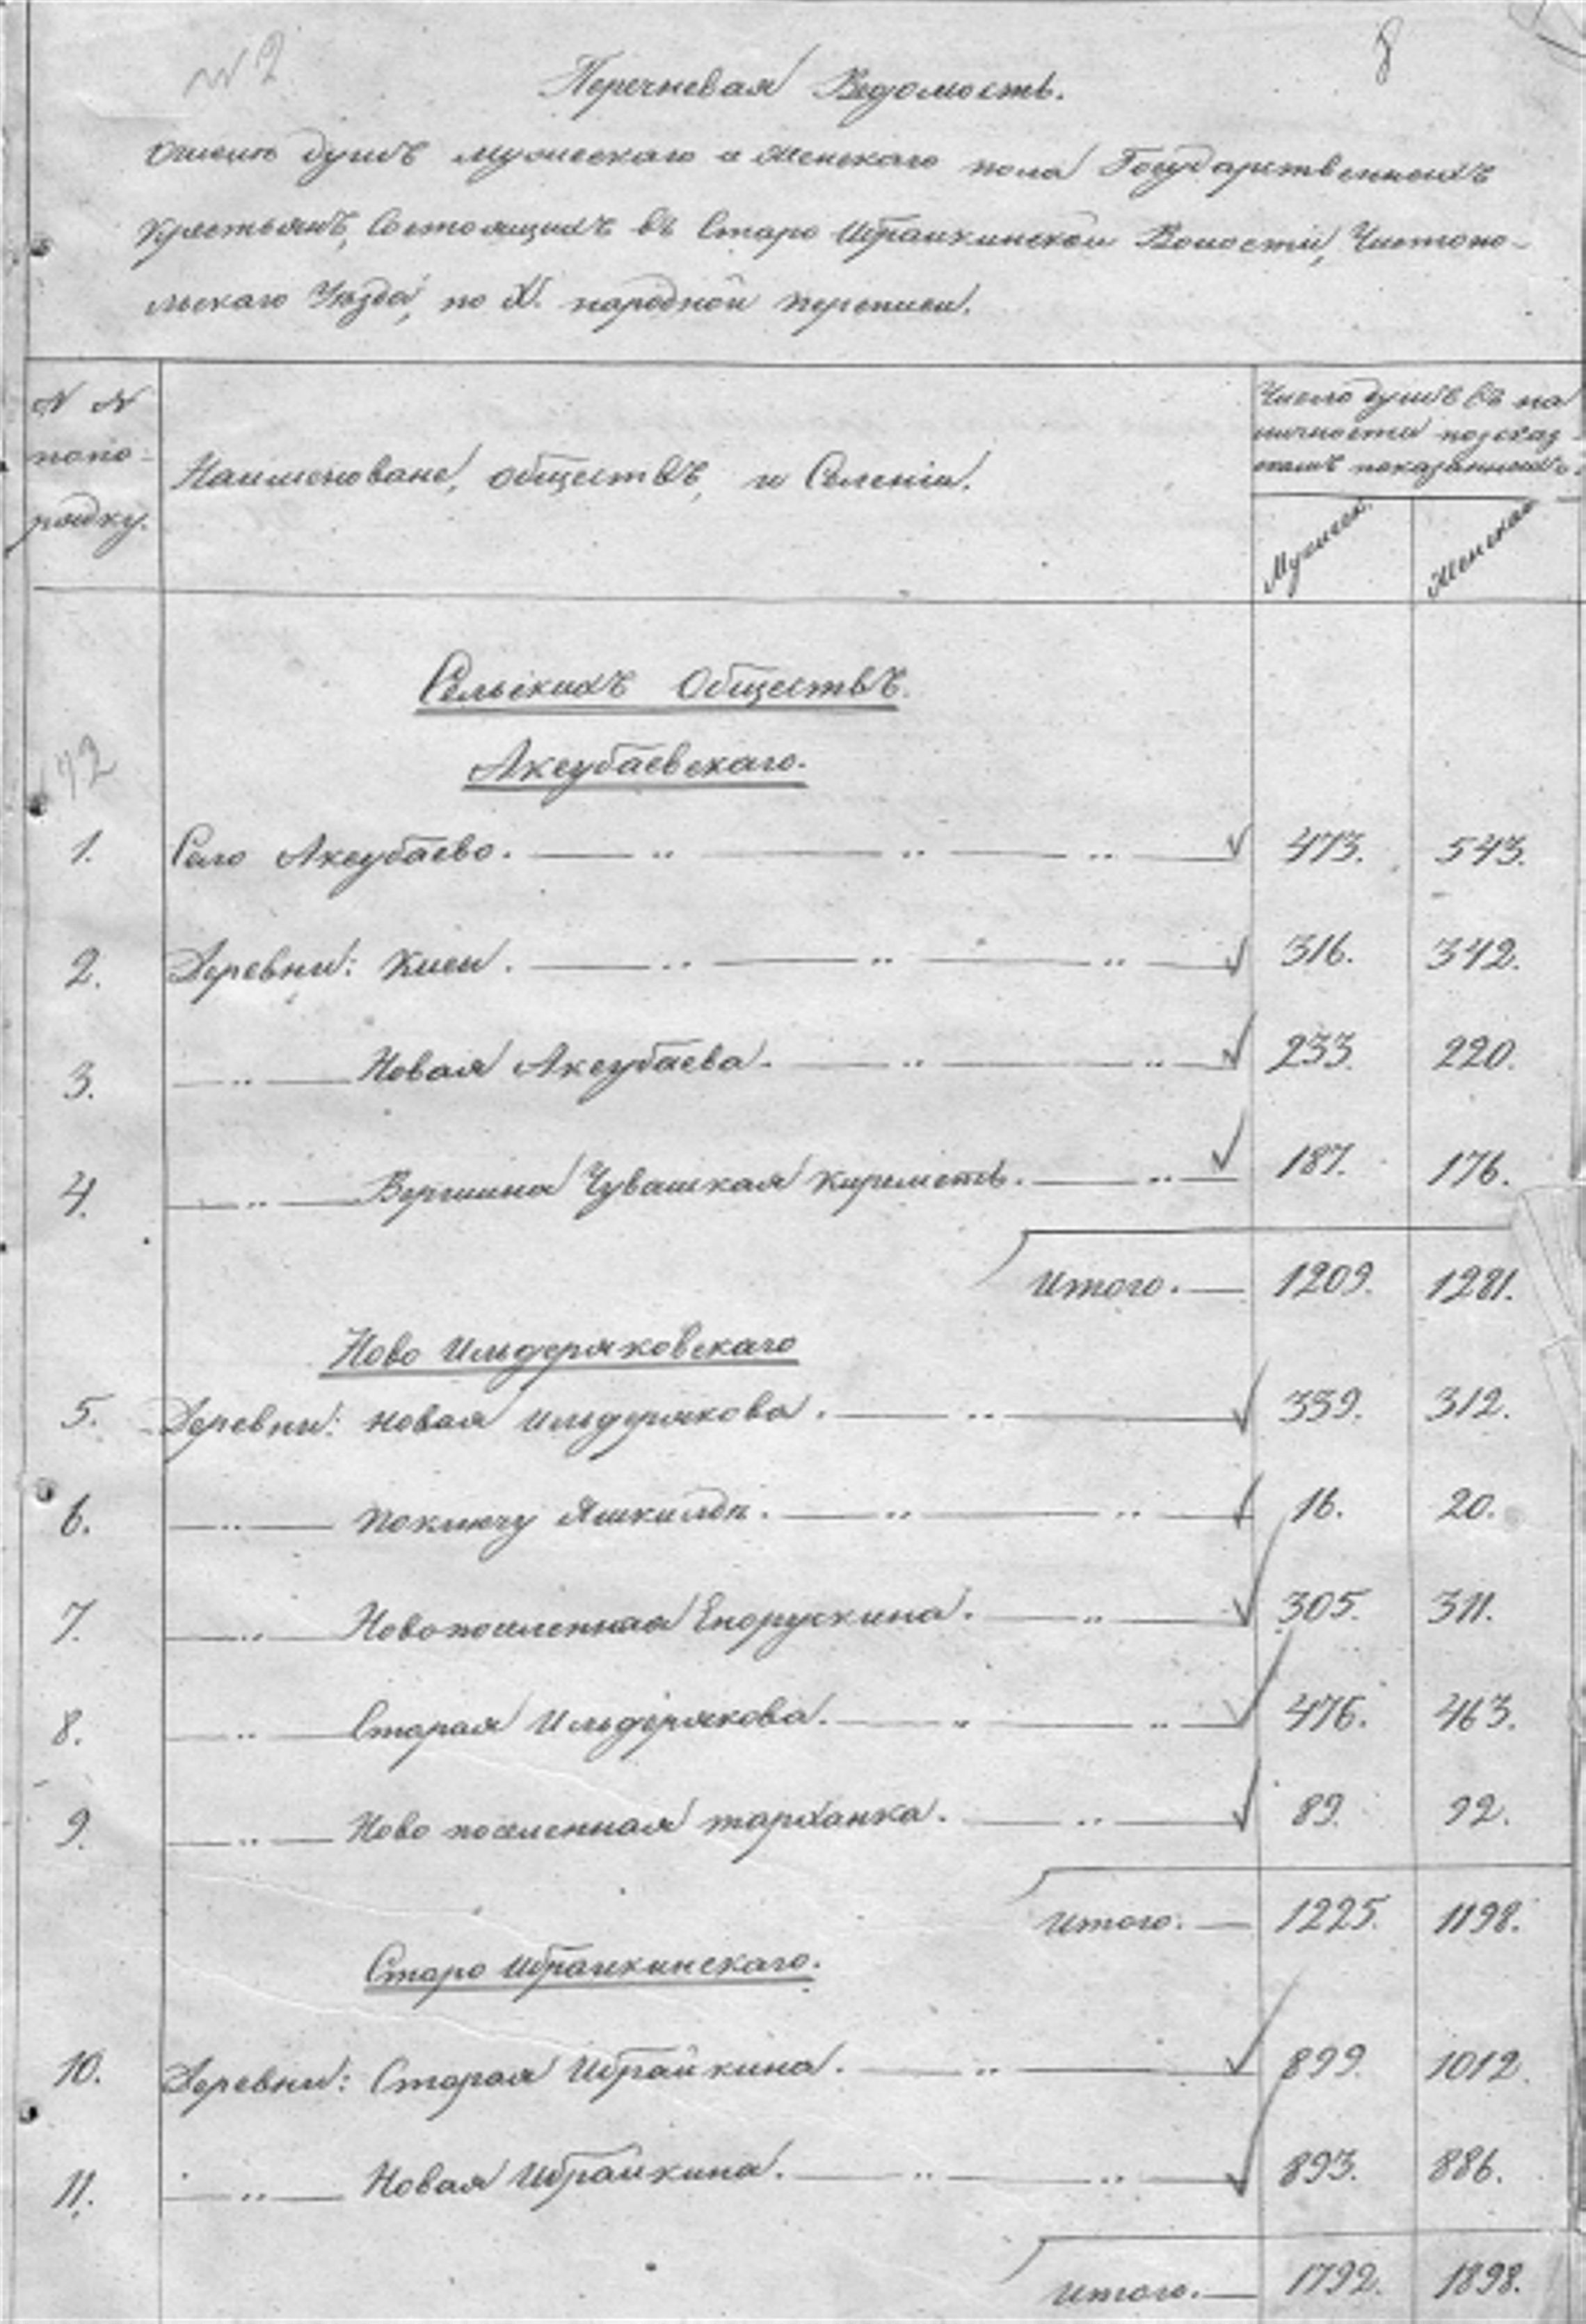 № 2
8
Перечневая Ведомость.
О числѣ душъ мужескаго и женскаго пола Государственныхъ
крестьянъ, Состоящихъ въ Старо Ибрайкинской Волости, Чистопо-
льскаго Уѣзда, по X. народной переписи.
N N
попо-
рядку.
Наименоване, обществъ, и Селенiи.
Число душъ въ на
личности по сказ
камъ показанныхъ
Мужеск.
Женскаго
Сельскихъ Обществъ.
Аксубаевскаго.
1. Село Аксубаево. 473. 543.
2. Деревни: Кисы. 316. 342.
3. Новая Аксубаева. 233. 220.
4. Вершина Чувашская Киреметь. 187. 176.
Итого. 1209. 1281.
Ново Ильдеряковскаго
5. Деревни: Новая Ильдерякова. 339. 312.
6. Поключу 16. 20.
7. Новопоселенная Енорускина. 305. 311.
8. Старая Ильдерякова. 476. 463.
9. Ново поселенная тарханка. 89. 92.
Итого. 1225. 1198.
Старо Ибрайкинскаго.
10. Деревни: Старая Ибрайкина. 899. 1012.
11. Новая Ибрайкина. 893. 886.
Итого. 1792. 1898.